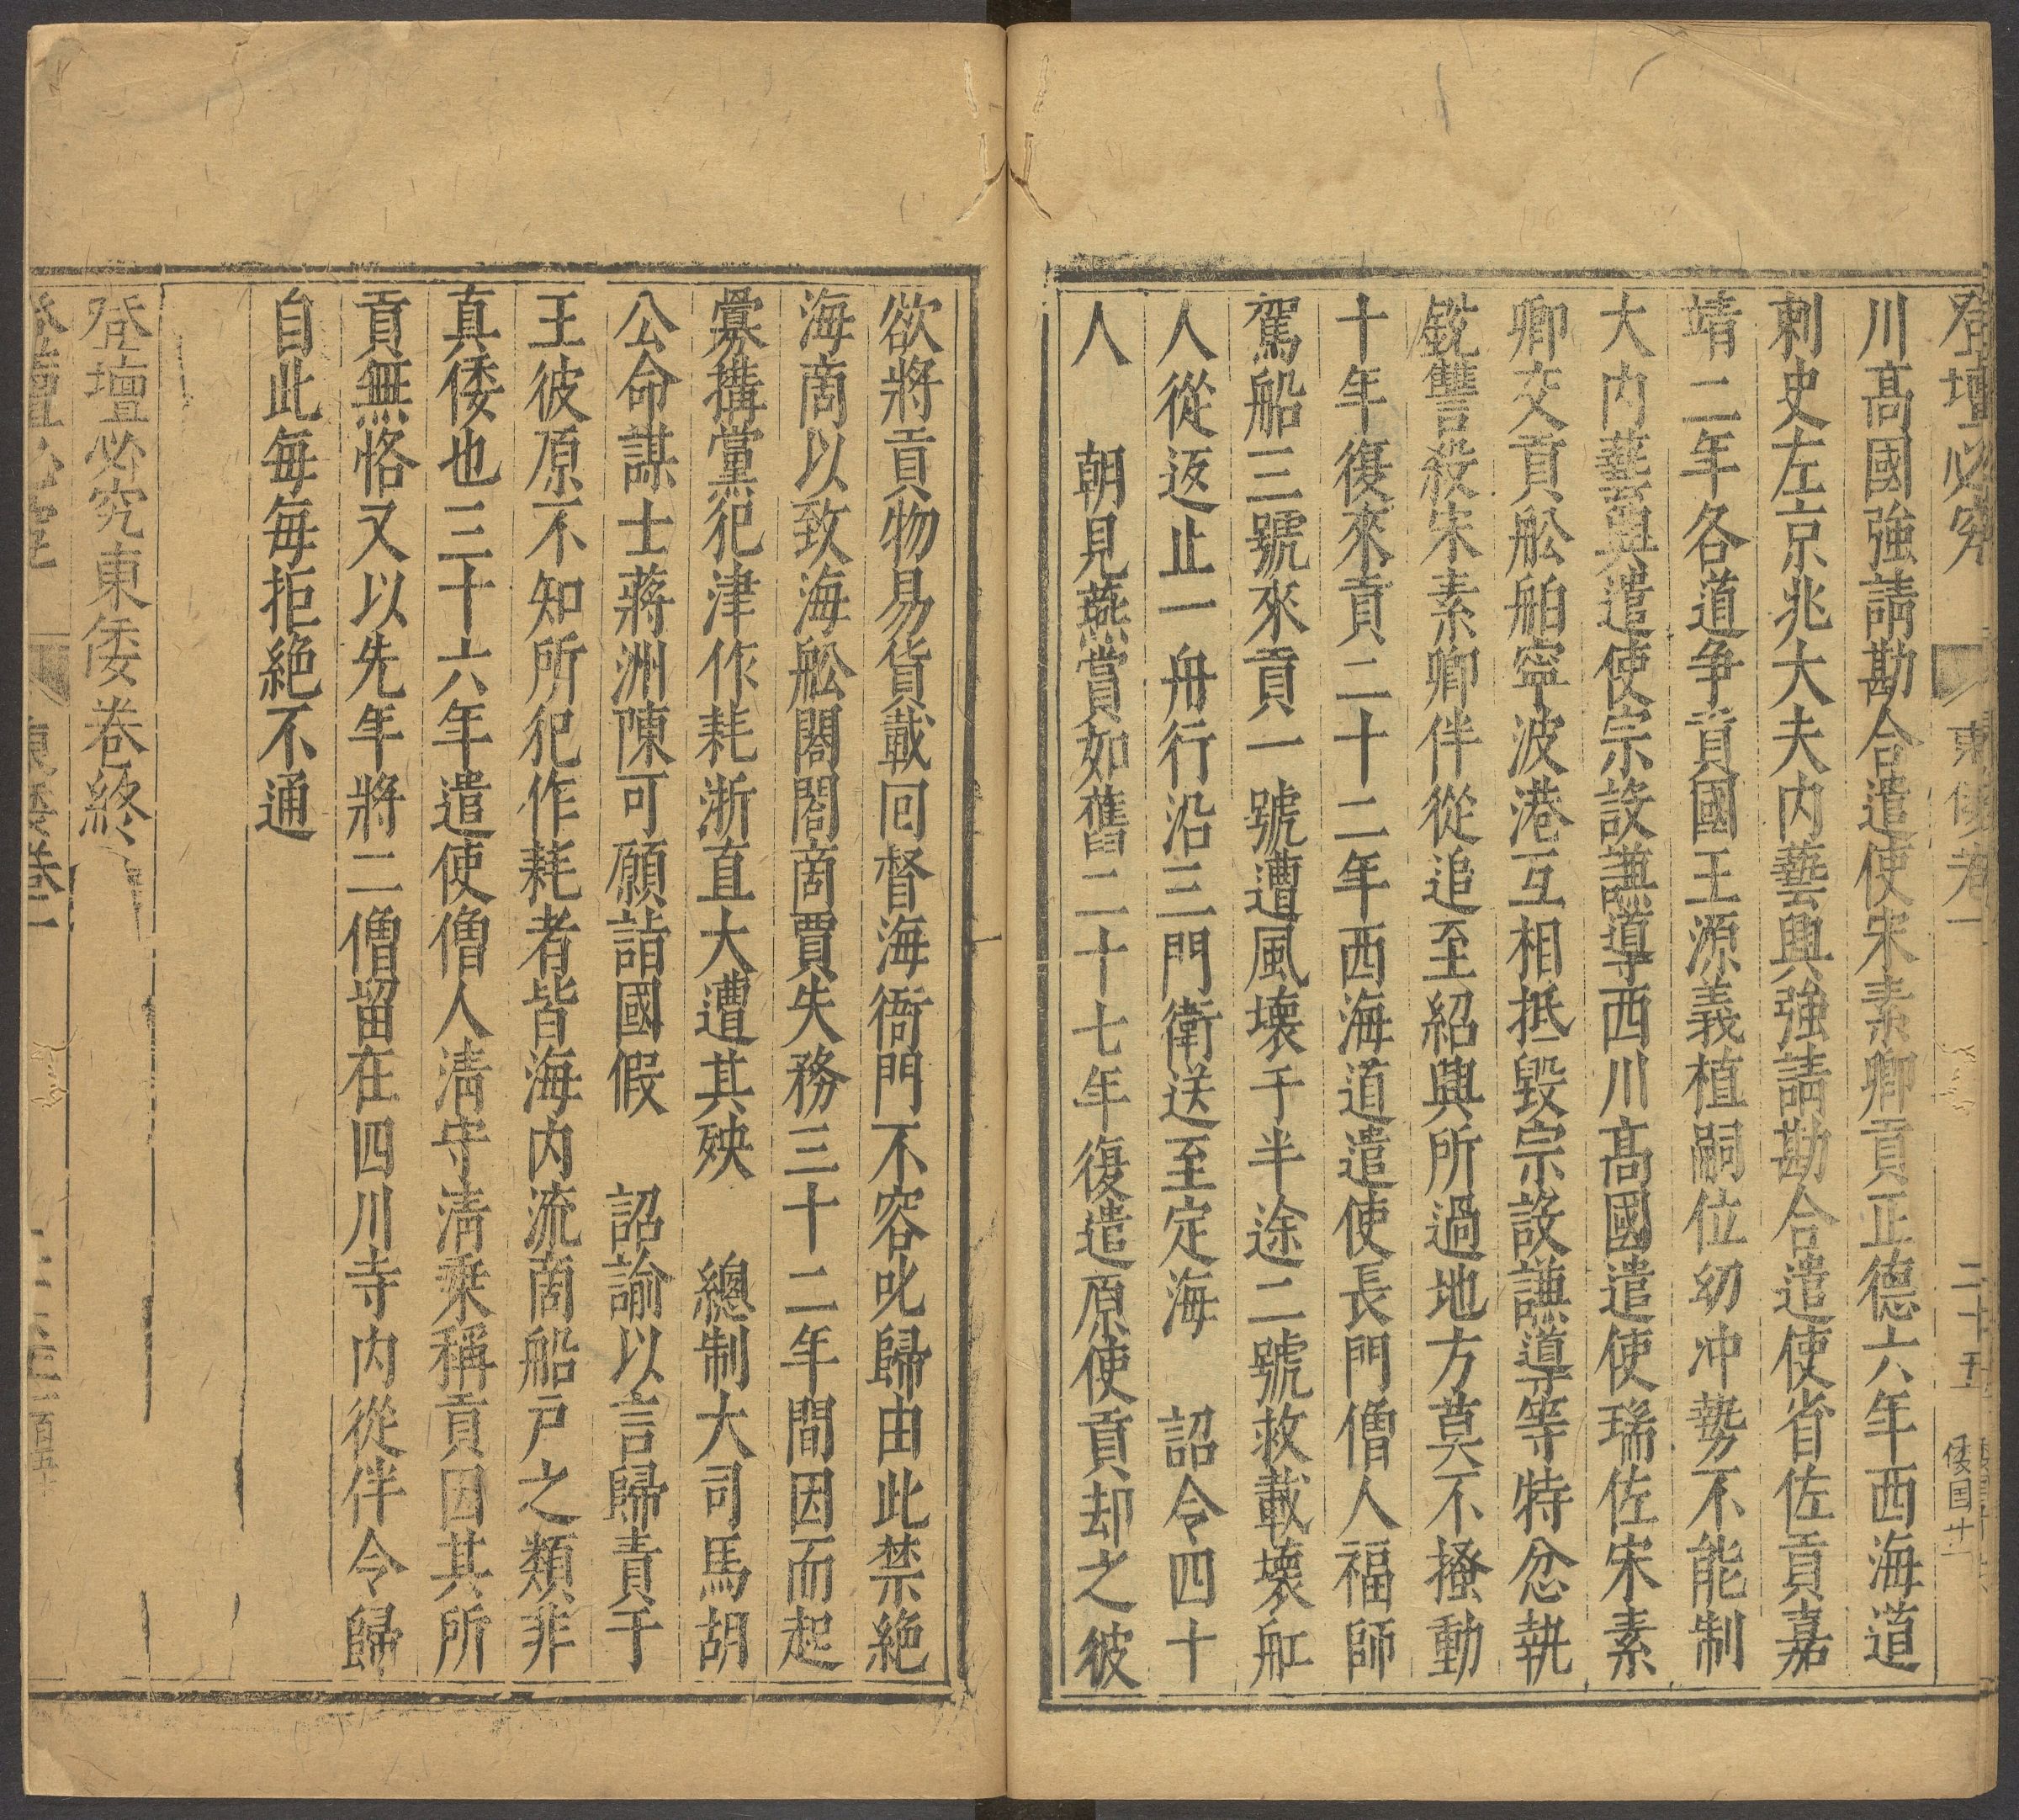 登壇必究 東倭卷一 二十五 倭国廿一
川高國強請勘合遣使宋素卿貢正德六年西海道
刺史左京兆大夫内藝興強請勘合遣使省佐貢嘉
靖二年各道争貢國王源義植嗣位幼冲勢不能制
大内藝興遣使宗設謙導西川高國遣使瑞佐宋素
卿交貢舩舶寧波港互相抵毀宗設謙導等特忿執
銳讐殺宋素卿伴從追至紹興所過地方莫不搔動
十年復來貢二十二年西海道遣使長門僧人福師
駕船三號來貢一號遭風壊于半途二號救載壊舡
人從返止一舟行沿三門衛送至定海　詔令四十
人　朝見燕賞如舊二十七年復遣原使貢却之彼
欲將貢物易貨載回督海衙門不容叱歸由此禁絶
海商以致海舩閣閣商賈失務三十二年間因而起
釁搆黨犯津作耗浙直大遭其殃　總制大司馬胡
公命謀士蔣洲陳可願詣國假　詔諭以言歸責于
王彼原不知所犯作耗者皆海内流商船戸之類非
真倭也三十六年遣使僧人清守清乘稱貢因其所
貢無恪又以先年將二僧留在四川寺内從伴令歸
自此每每拒絶不通
登壇必究東倭卷終
登壇必究 東倭卷二